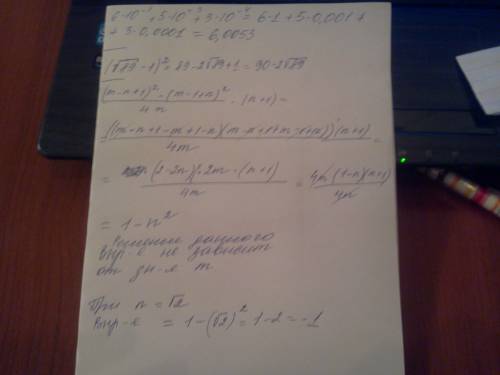 6·10⁻¹+5·10⁻³+3·10⁻⁴=6·1+5·0,001+
+3·0,0001=6,0053
(√89-1)²=89-2√89+1=90-2√89
((m-n+1)²-(m-1+n)²)/4m·(n+1)=
((m-n+1-m+1-n)(m-n+1+m-1+n))(n+1)/4m=
=(2-2n)·2m·(n+1)/4m=4m(1-n)(n+1)/4m
=1-n²
Решение данного
выр-е не зависит
от зн-е m.
При n=√2
выр-е =1-(√2)²=1-2=-1